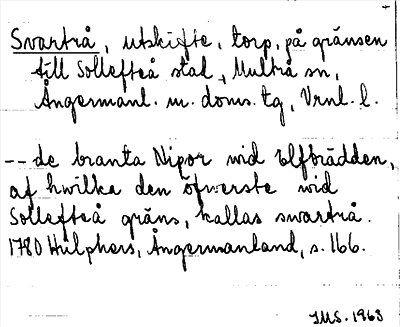 Svartrå, utskifte, torp, på gränsen
till Sollefteå stad, Multrå sn,
Ångermanl. m. doms. tg, Vrnl. l.
-- de branta Nipor wid Elfbrädden,
af hwilka den öfwerste wid
Sollefteå gräns, kallas swartrå.
1780 Hülphers, Ångermanland, s. 166.
1963